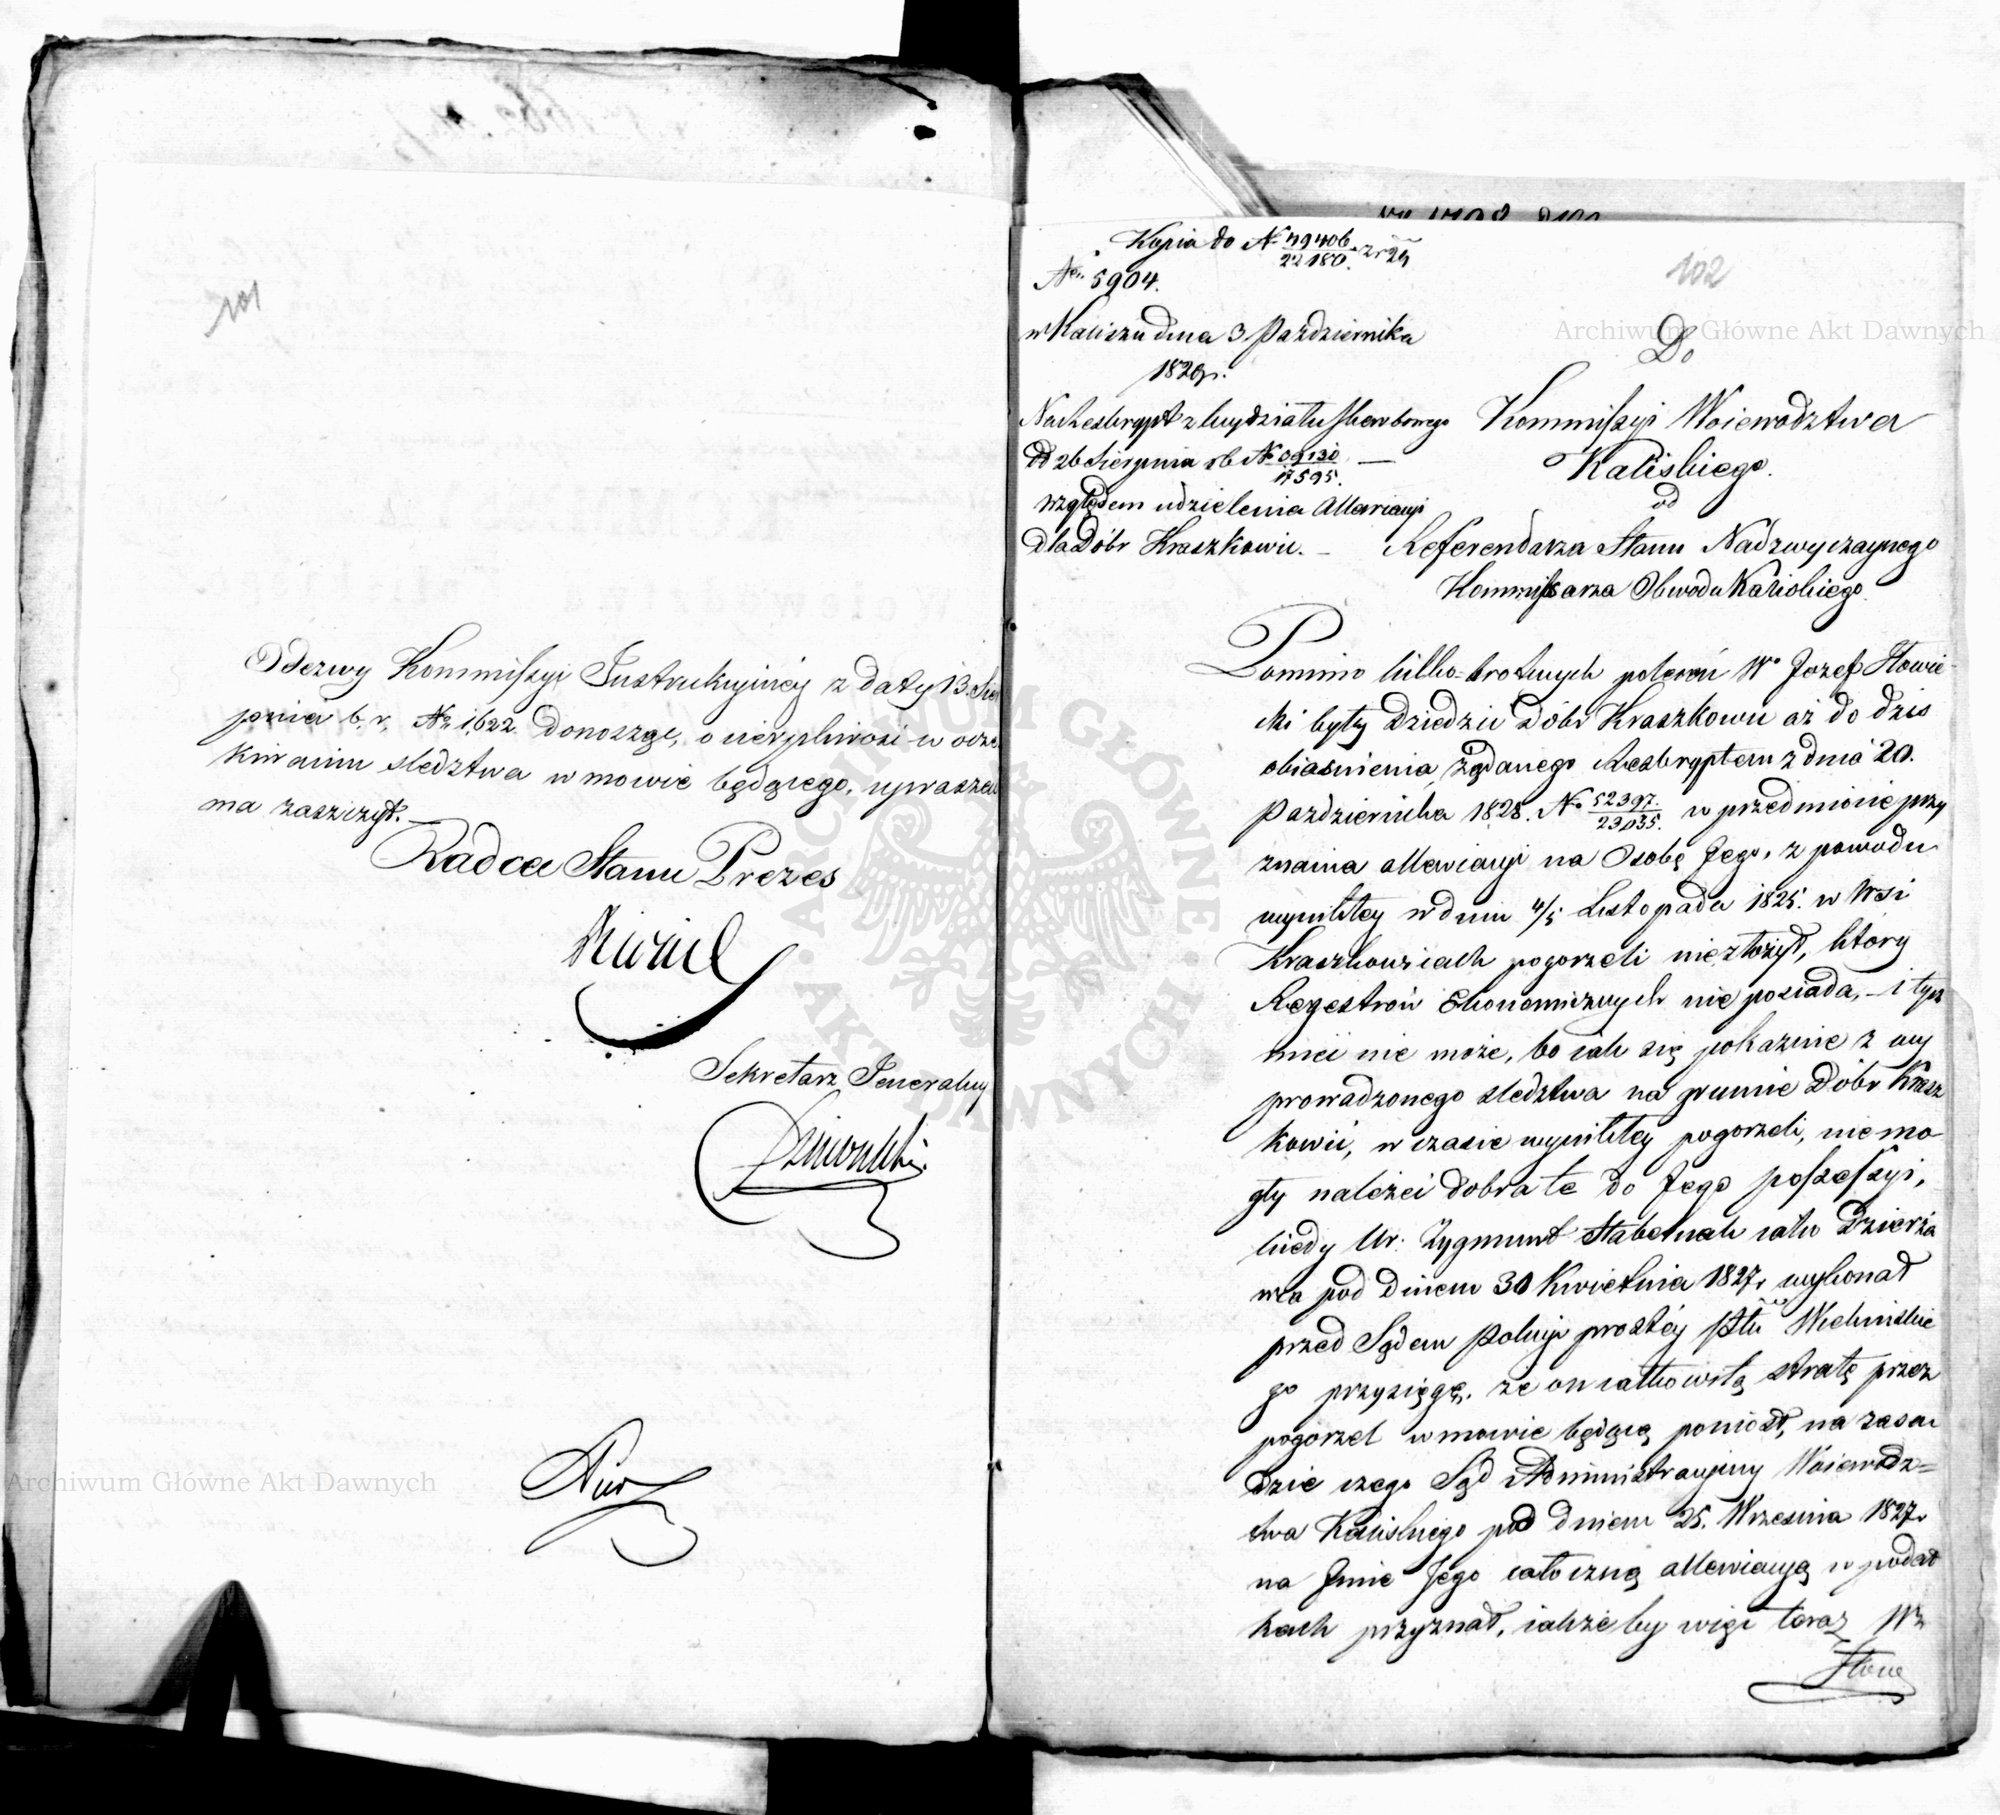 101
Odezwy Kommissyi Instrukcyiney z daty 13. Sier
pnia b. r. Nr 1,622. donosząc, o cierpliwość w ocze
kiwaniu śledztwa w mowie będącego, upraszać
ma zaszczyt.
Radca Stanu Prezes
Sekretarz Jeneralny
Archiwum Główne Akt Dawnych
Kopia do Nr 49406/22180. z r 29
102
Nr. 5904.
w Kaliszu dnia 3 Października
1829 r.
Na Reskrypt z Wydziału Skarbowego
dd 26 Sierpnia rb Nr /17595. —
względem udzielenia allewiacyi
dla Dóbr Kraszkowic. —
Archiwum Główne Akt Dawnych
Do
Kommissyi Woiewodztwa
Kaliskiego.
od
Referendarza Stanu Nadzwyczaynego
Kommissarza Obwodu Kaliskiego.
Pomimo kilko-krotnych poleceń Wo Jozef Słowic
ki były Dziedzic Dóbr Kraszkowic aż do dziś
obiaśnienia żądanego Reskryptem z dnia 20.
Października 1828. No 52397./23035. w przedmiocie przy
znania allewiacyi na Osobę Jego, z powodu
wynikłey w dniu 4/5 Listopada 1825. w Wsi
Kraszkowicach pogorzeli niezłożył, który
Regestrów Ekonomicznych nie posiada, — i tych
mieć nie może, bo iak się pokazuie z wy
prowadzonego śledztwa na gruncie Dóbr Krasz
kowic, w czasie wynikłey pogorzeli, nie mo
gły należeć dobra te do Jego possessyi,
kiedy Ur: Zygmunt Stabelnak iako Dzierża
wca pod dniem 30 Kwietnia 1827 r wykonał
przed Sądem Policyi prostéy Pttu Wieluńskie
go przysięgę, że on całkowitą stratę przez
pogorzel w mowie będącą poniósł, na zasa
dzie czego Sąd Administracyiny Woiewódz=
twa Kaliskiego pod dniem 25. Września 1827 r
na Jmie Jego całoczną allewiacyą w podat
kach przyznał, iakże by więc teraz Wz
Słowic
ARCHIWUM GŁÓWNE AKT DAWNYCH